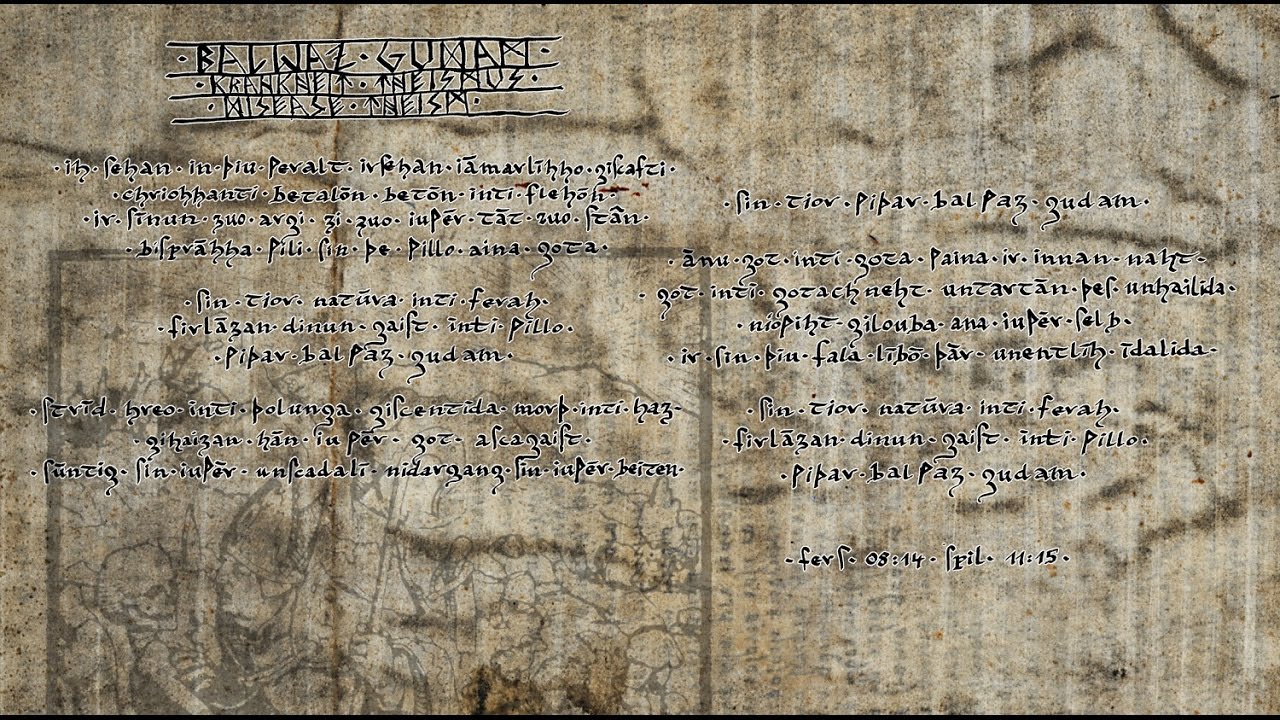 · BALWAZ · GUDAM ·
· KRANKHEIT · THEISMUS ·
· DISEASE · THEISM ·
· ih · sehan · in · þiu · ƿeralt · irsehan · iāmarlīhho · giscafti ·
· chriohhanti · betalōn · betōn · inti · flehōn ·
· ir · sīnun · zuo · argi · zi · zuo · iuƿēr · tāt · zuo · stān ·
· bisprāhha · ƿili · sin · þe · ƿillo · aina · gota ·
· sin · tior · natūra · inti · ferah ·
· firlāzan · dinun · gaist · inti · ƿillo ·
· ƿiþar · balƿaz · gudam ·
· strīd · hreo · inti · þolunga · giscentida · morþ · inti · haz ·
· gihaizan · hān · iuƿēr · got · ascagaist ·
· sūntig · sin · iuƿēr · unscadalī · nidargang · sin · iuƿēr · beiten ·
· sin · tior · ƿiþar · balƿaz · gudam ·
· ānu · got · inti · gota · ƿaina · ir · innan · naht ·
· got · inti · gotachneht · untartān · þes · unhailida ·
· nioƿiht · gilouba · ana · iuƿēr · selb ·
· ir · sin · þiu · fala · lībō · ƿār · unentlīh · īdalida ·
· sin · tior · natūra · inti · ferah ·
· firlāzan · dinun · gaist · inti · ƿillo ·
· ƿiþar · balƿaz · gudam ·
· fers · 08:14 · spil · 11:15 ·